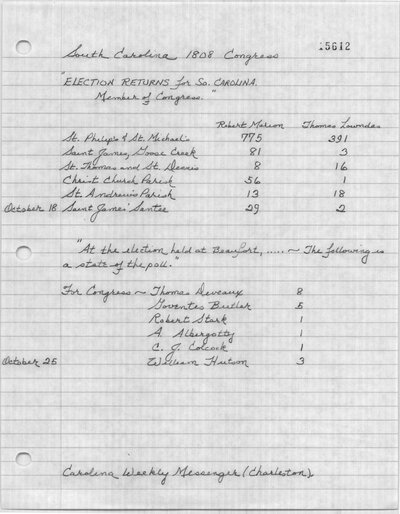 South Carolina 1808 Congress 15612
"ELECTION RETURNS for So. CAROLINA.
Member of Congress."
Robert Marion Thomas Lowndes
St. Philip's & St. Michael's 775 391
Saint James, Goose Creek 81 3
St. Thomas and St. Dennis 8 16
Christ Church Parish 56 1
St. Andrew's Parish 13 18
October 18 Saint James' Santee 29 2
"At the election held at Beaufort, ..... ~ The following is
a state of the poll."
For Congress ~ Thomas Deveaux 8
Goventes Butler 5
Robert Stark 1
A. Albergotty 1
C. J. Colcock 1
October 25 William Hutson 3
Carolina Weekly Messenger (Charleston),